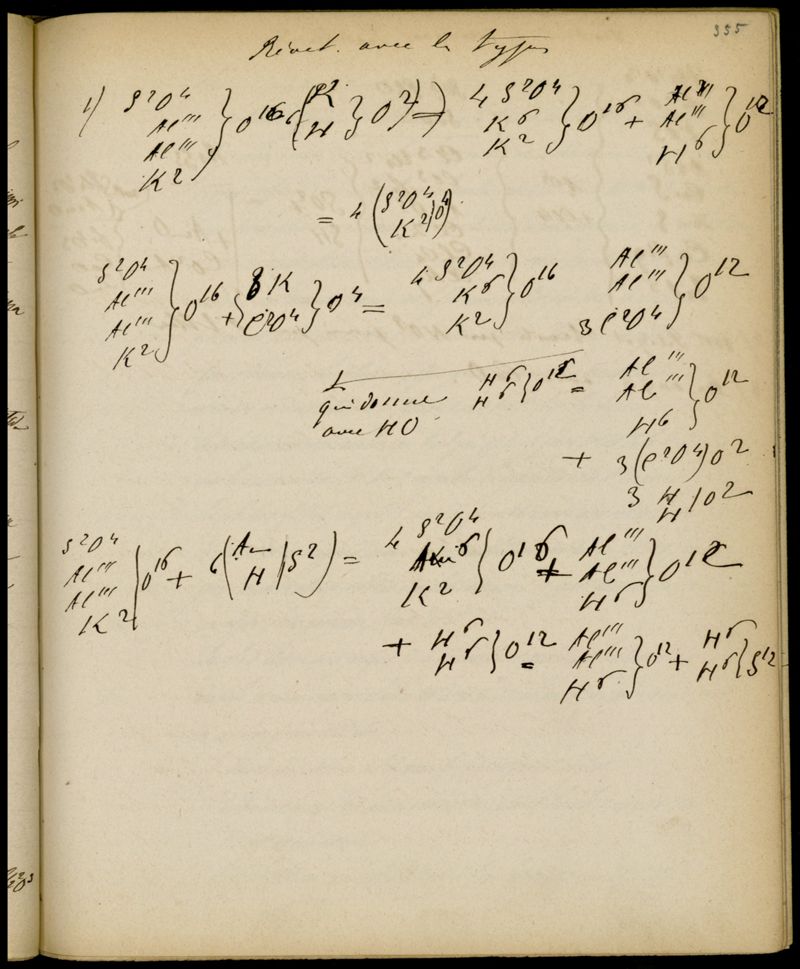 355
avec les types
1) S²O⁴ Al''' Al''' K² } O¹⁶ 6 ( K H } O² ) = 4 S²O⁴ K⁶ K² } O¹⁶ + Al''' Al''' H⁶ } O¹²
= 4 ( S²O⁴ K² | O⁴ )
S²O⁴ Al''' Al''' K² } O¹⁶ + } K C²O⁴ } O⁴ = 4 S²O⁴ K⁶ K² } O¹⁶ Al''' Al''' 3 C²O⁴ } O¹²
qui donne avec HO H⁶ H⁶ } O¹² = Al''' Al''' H⁶ } O¹²
+ 3 (C²O⁴) O²
3 H H | O²
S²O⁴ Al''' Al''' K² | O¹⁶ + 6 ( Am H | S² ) = 4 S²O⁴ Am⁶ K² } O¹⁶ + Al''' Al''' H⁶ } O¹²
+ H⁶ H⁶ } O¹² = Al''' Al''' H⁶ } O¹² + H⁶ H⁶ } S¹²